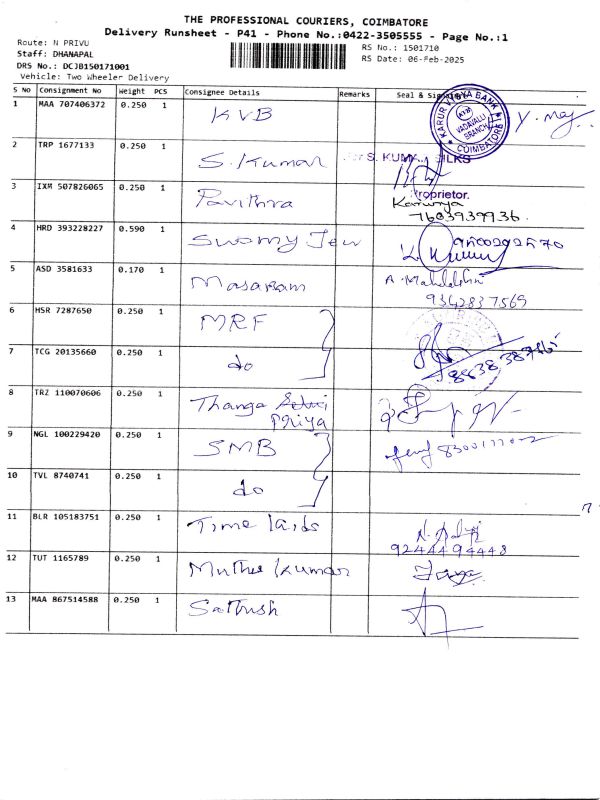 THE PROFESSIONAL COURIERS, COIMBATORE
Delivery Runsheet - P41 - Phone No.:0422-3505555 - Page No.:1
Route: N PRIVU
RS No.: 1501710
Staff: DHANAPAL
RS Date: 06-Feb-2025
DRS No.: DCJB150171001
Vehicle: Two Wheeler Delivery
S No Consignment No Weight PCS Consignee Details Remarks Seal & Sig
1 MAA 707406372 0.250 1 KVB
KARUR VYSYA BANK
VADAVALLI
BRANCH
COIMBATORE
2 TRP 1677133 0.250 1 S. Kumar
S. KUMA SILKS
Proprietor.
3 IXM 507826065 0.250 1 Pavithra Karunya
7603939936.
4 HRD 393228227 0.590 1 Swamy Jew
9500292570
5 ASD 3581633 0.170 1 Masaram
9342837569
6 HSR 7287650 0.250 1 MRF
7 TCG 20135660 0.250 1 do
8 TRZ 110070606 0.250 1 Thanga
Priya
9 NGL 100229420 0.250 1 SMB
10 TVL 8740741 0.250 1 do
11 BLR 105183751 0.250 1 Time kids
9244494448
12 TUT 1165789 0.250 1 Muthu Kumar
13 MAA 867514588 0.250 1 Sathush